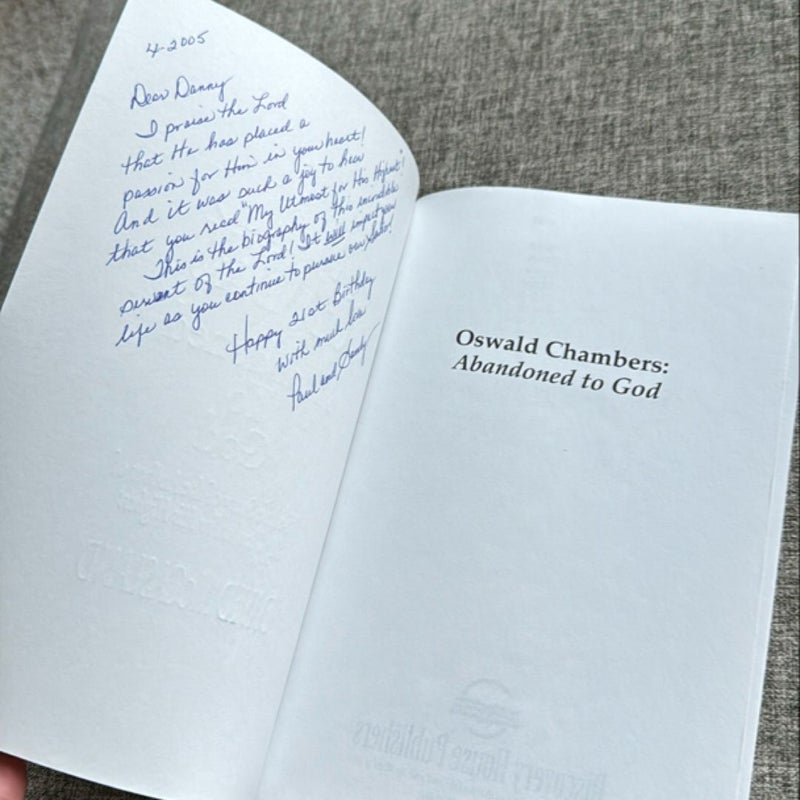 4-2005
Dear Danny
I praise the Lord
that He has placed a
passion for Him in your heart!
And it was such a joy to hear
that you read "My Utmost for His Highest"!
This is the biography of this incredible
servant of the Lord! It will impact your
life as you continue to pursue our
Happy 21st Birthday
With much love
Paul and
Oswald Chambers:
Abandoned to God
Discovery House Publishers